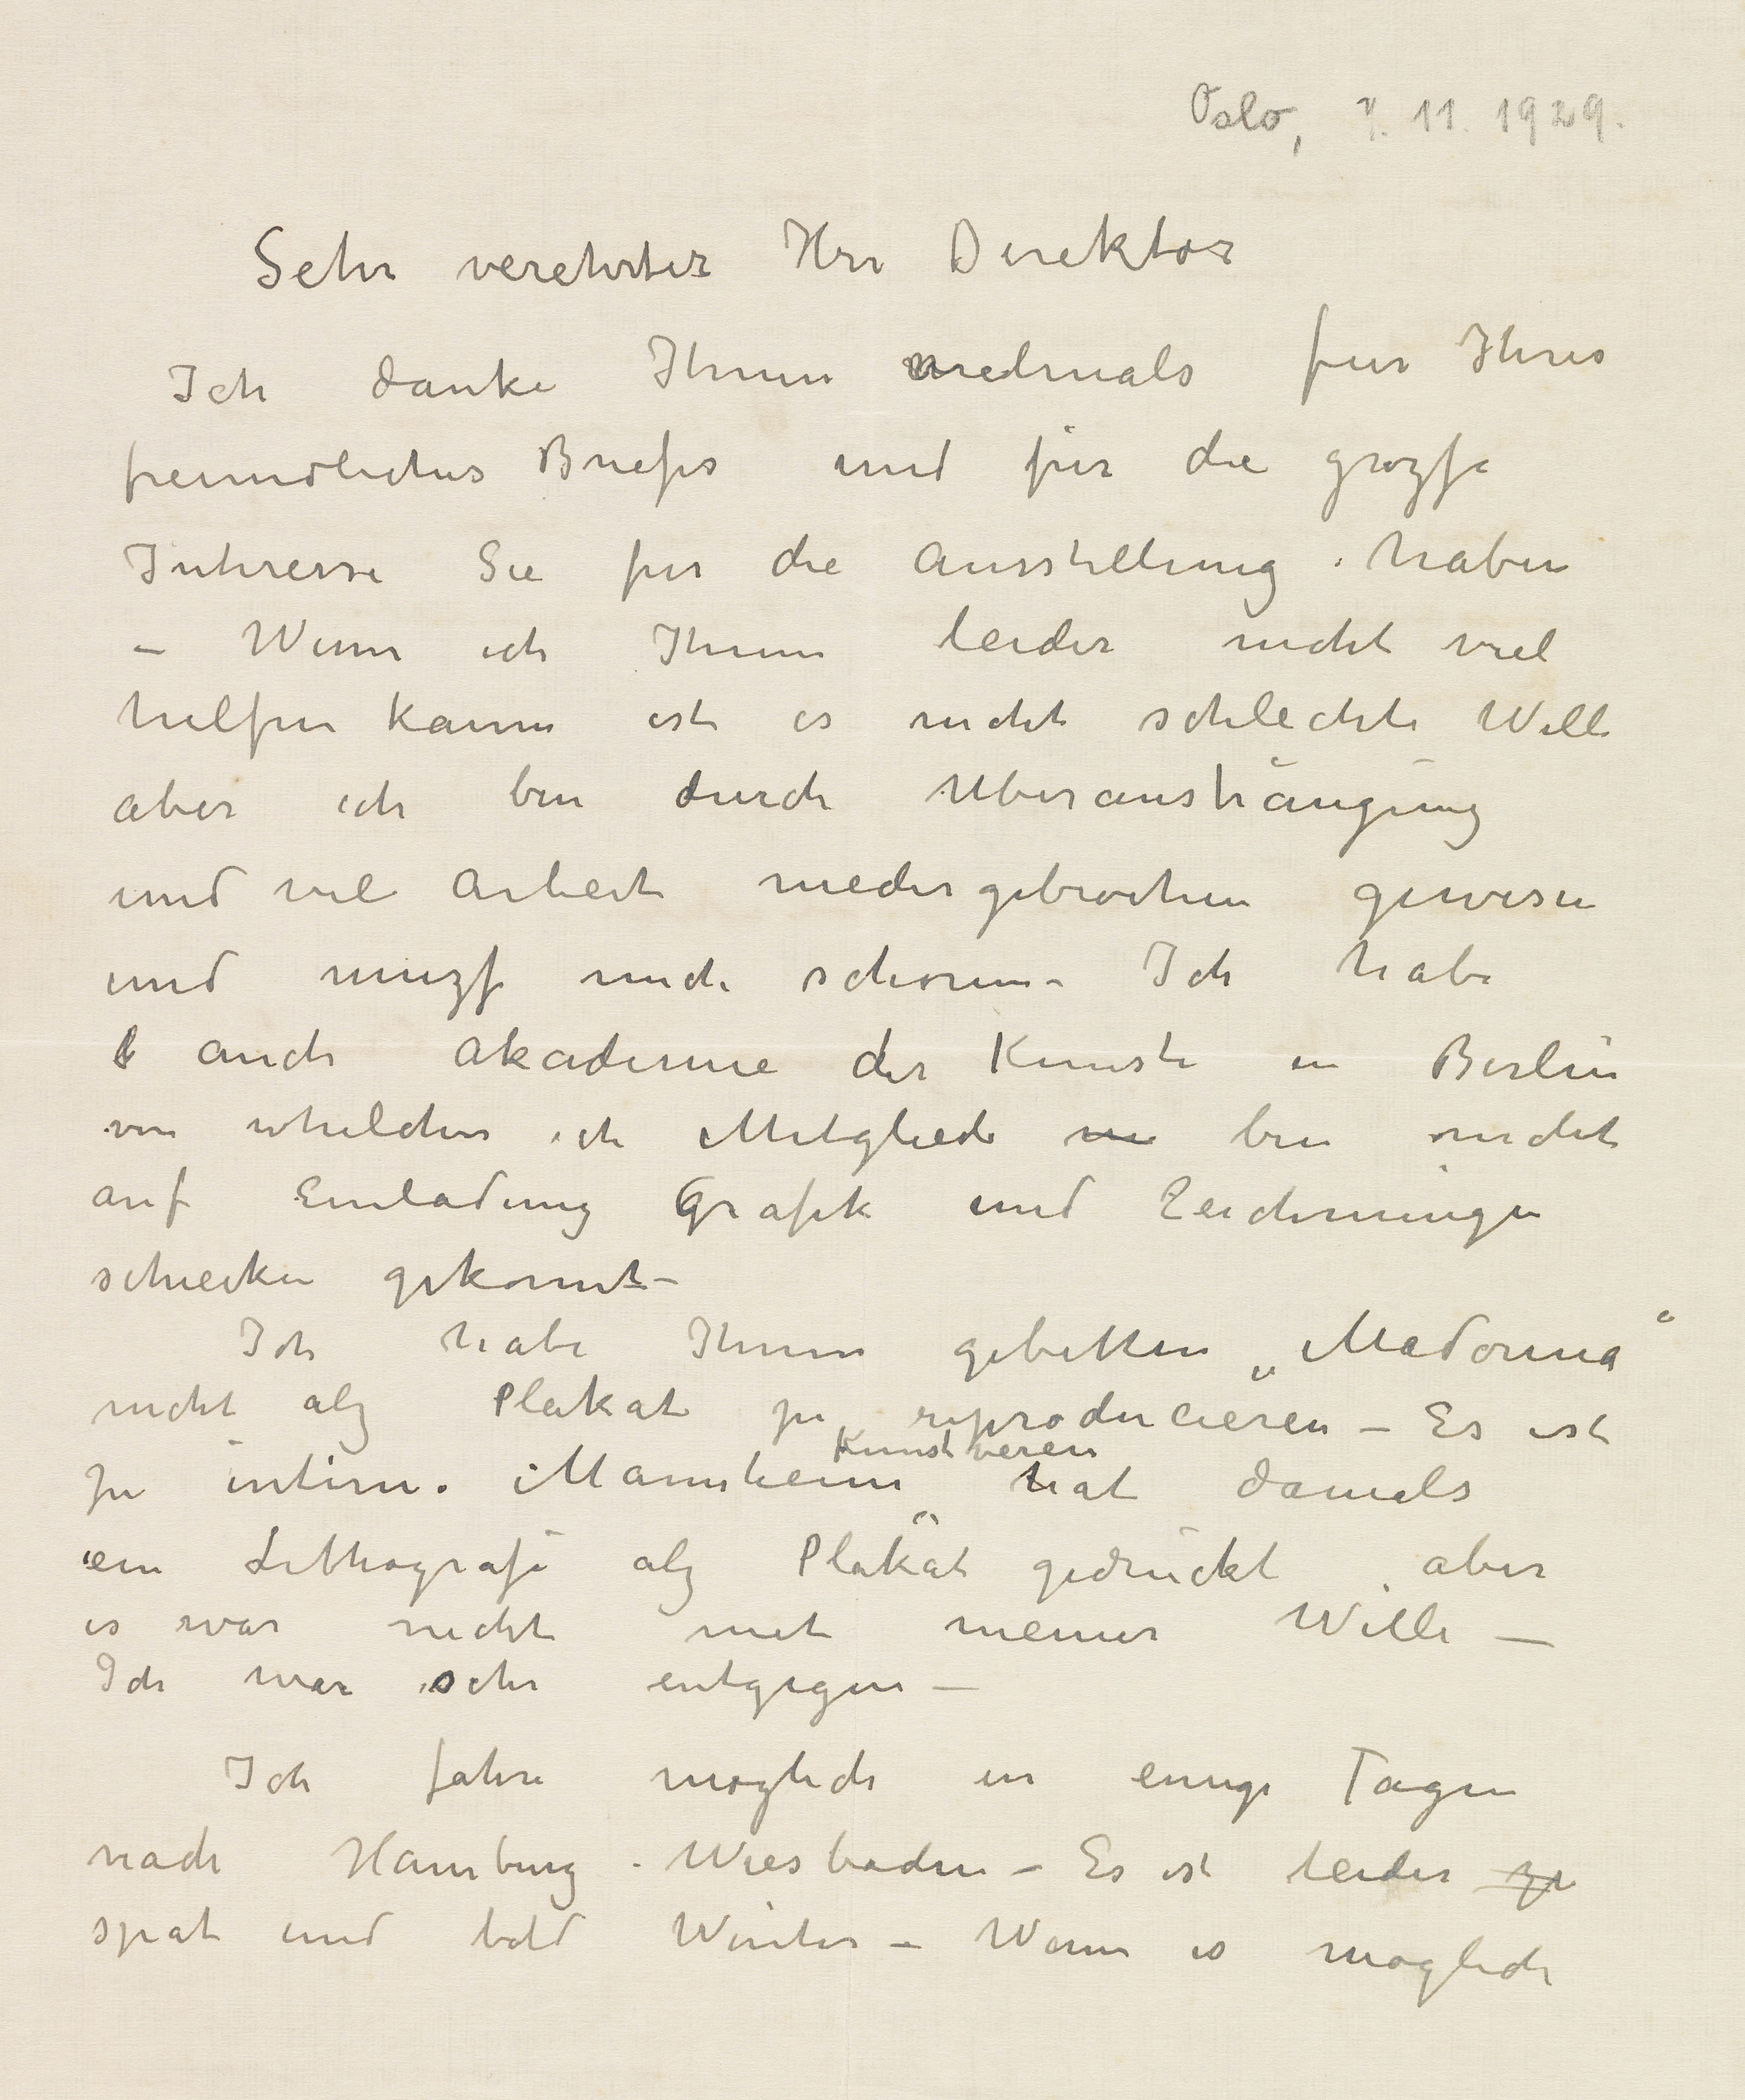 Oslo, 7. 11. 1929.
Sehr verehrter Herr Direktor
Ich danke Ihnen vielmals fur Ihres
freundliches Briefes und für die grozse
Interesse Sie fur die Ausstellung haben
– Wenn ich Ihnen leider nicht viel
helfen kann ist es nicht schlechte Wille
aber ich bin durch Uberansträngung
und viel Arbeit niedergebrochen gewesen
und muzs mich schonen – Ich habe
auch Akademie der Kunste in Berlin
von whelchen ich Mitglied bin nicht
auf Einladung Grafik und Zeichnungen
schicken gekonnt –
Ich habe Ihnen gebitten „Madonna“
nicht alz Plakat zu reproducieren – Es ist
zu intim. Mannheim Kunstverein hat damals
ein Lithografi alz Plakat gedruckt aber
es war nicht mit meiner Wille –
Ich war sehr entgegen –
Ich fahre moglich in einige Tagen
nach Hamburg - Wiesbaden – Es ist leider
spat und bald Winter – Wenn es moglich